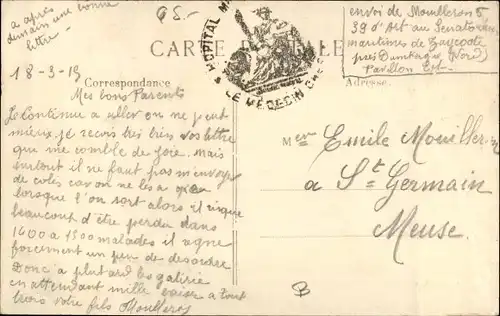 a après
demain une bonne
lettre -
GS.-
HOPITAL
LE MEDECIN CHEF
CARTE POSTALE
envoi de Mouilleron 5
39 d'Art au Sanatorium
maritimes de Zuycoote
près Dunkerque (Nord)
Pavillon Est -
18-3-15
Correspondance
Adresse
Mes bons Parents
Je continue a aller on ne peut
mieux je recois très bien vos lettre
qui me comble de joie. Mais
surtout il ne faut pas m'envoyer
de colis car on ne les a
lorsque l'on sort alors il risque
beaucoup d'être perdu dans
1400 a 1500 malades il
forcement un peu de desordre
Donc a plus tard les
en attendant mille a tout
trois votre fils Mouilleron
Mer Emile Mouilleron
a St Germain
Meuse.
B